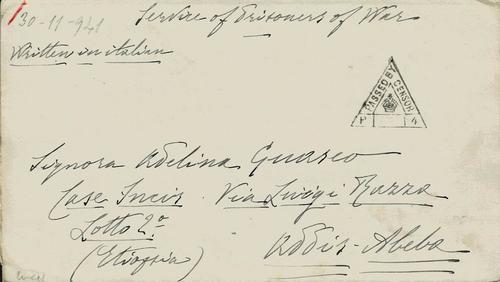 30-11-941
Service of Prisoners of War
Written in italian
PASSED BY CENSOR
P 4
Signora Adelina Guasco
Case Incis. Via Luigi Razza
Lotto 2º
(Etiopia)
Addis-Abeba